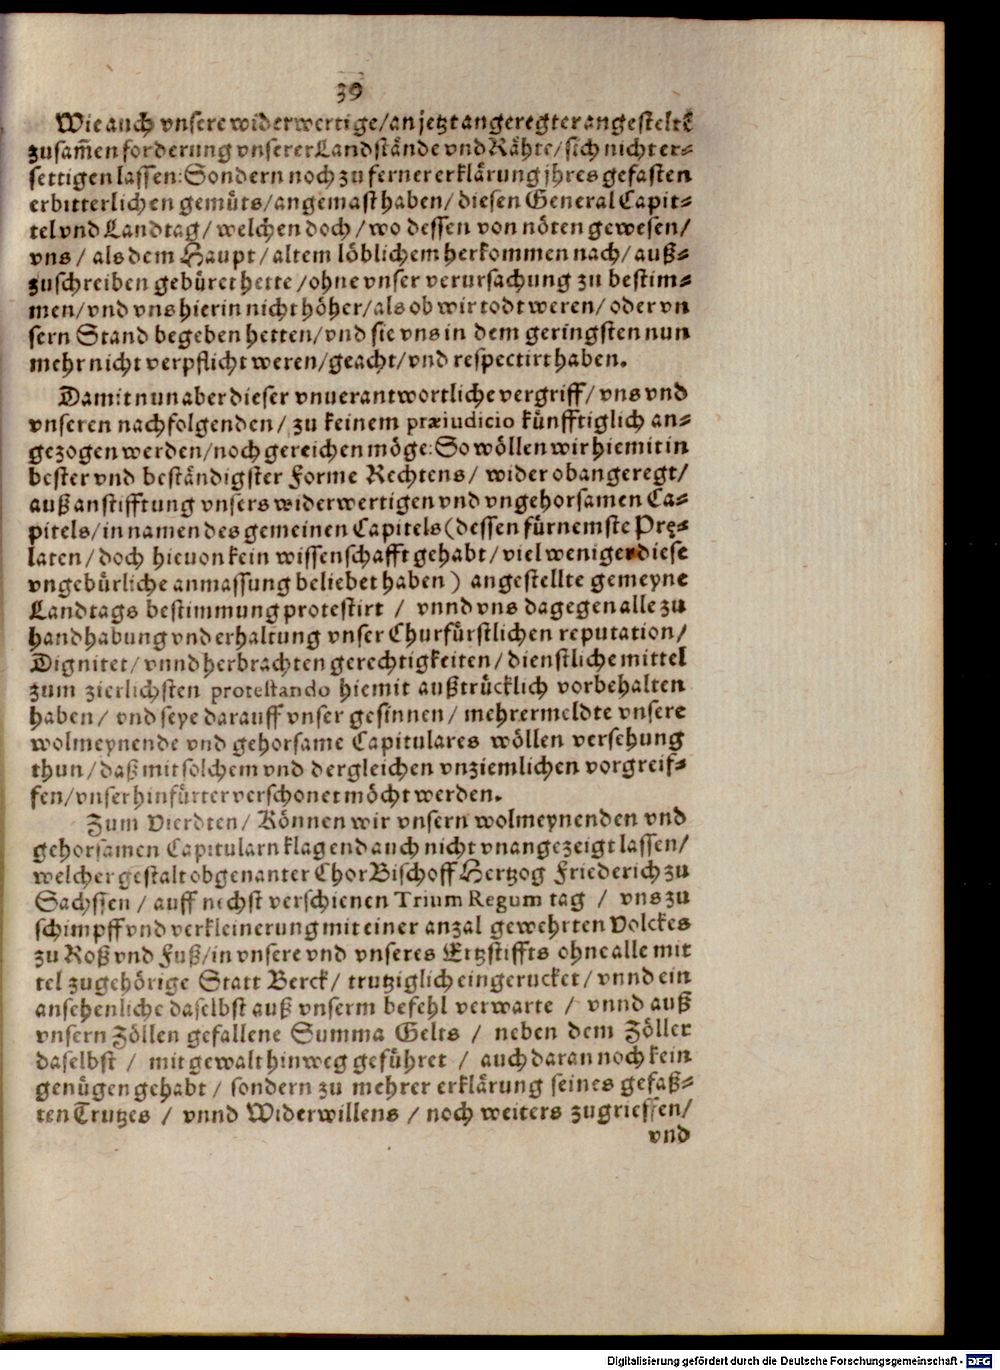 39
Wie auch vnsere widerwertige/ an jetzt angeregter angestelte
zusam̃en forderung vnserer Landstände vnd Rähte/ sich nicht er-
settigen lassen: Sondern noch zu ferner erklärung jhres gefasten
erbitterlichen gemüts/ angemast haben/ diesen General Capit-
tel vnd Landtag/ welchen doch/ wo dessen von nöten gewesen/
vns/ als dem Haupt/ altem löblichem herkommen nach/ auß-
zuschreiben gebüret hette/ ohne vnser verursachung zu bestim-
men/ vnd vns hierin nicht höher/ als ob wir todt weren/ oder vn
sern Stand begeben hetten/ vnd sie vns in dem geringsten nun
mehr nicht verpflicht weren/ geacht/ vnd respectirt haben.
Damit nun aber dieser vnuerantwortliche vergriff/ vns vnd
vnseren nachfolgenden/ zu keinem præiudicio künfftiglich an-
gezogen werden/ noch gereichen möge: So wöllen wir hiemit in
bester vnd beständigster Forme Rechtens/ wider obangeregt/
auß anstifftung vnsers widerwertigen vnd vngehorsamen Ca-
pitels/ in namen des gemeinen Capitels (dessen fürnemste Prę-
laten/ doch hieuon kein wissenschafft gehabt/ viel weniger diese
vngebürliche anmassung beliebet haben) angestellte gemeyne
Landtags bestimmung protestirt / vnnd vns dagegen alle zu
handhabung vnd erhaltung vnser Churfürstlichen reputation/
Dignitet/ vnnd herbrachten gerechtigkeiten/ dienstliche mittel
zum zierlichsten protestando hiemit außtrücklich vorbehalten
haben/ vnd seye darauff vnser gesinnen/ mehrermeldte vnsere
wolmeynende vnd gehorsame Capitulares wöllen versehung
thun/ daß mit solchem vnd dergleichen vnziemlichen vorgreif-
fen/ vnser hinfürter verschonet möcht werden.
Zum Vierdten/ Können wir vnsern wolmeynenden vnd
gehorsamen Capitularn klagend auch nicht vnangezeigt lassen/
welcher gestalt obgenanter Chor Bischoff Hertzog Friederich zu
Sachssen / auff nechst verschienen Trium Regum tag / vns zu
schimpff vnd verkleinerung mit einer anzal gewehrten Volckes
zu Roß vnd Fuß/ in vnsere vnd vnseres Ertzstiffts ohne alle mit
tel zugehörige Statt Berck/ trutziglich eingerucket/ vnnd ein
ansehenliche daselbst auß vnserm befehl verwarte / vnnd auß
vnsern Zöllen gefallene Summa Gelts / neben dem Zöller
daselbst / mit gewalt hinweg geführet / auch daran noch kein
genügen gehabt/ sondern zu mehrer erklärung seines gefaß-
ten Trutzes / vnnd Widerwillens / noch weiters zugrieffen/
vnd
Digitalisierung gefördert durch die Deutsche Forschungsgemeinschaft - DFG